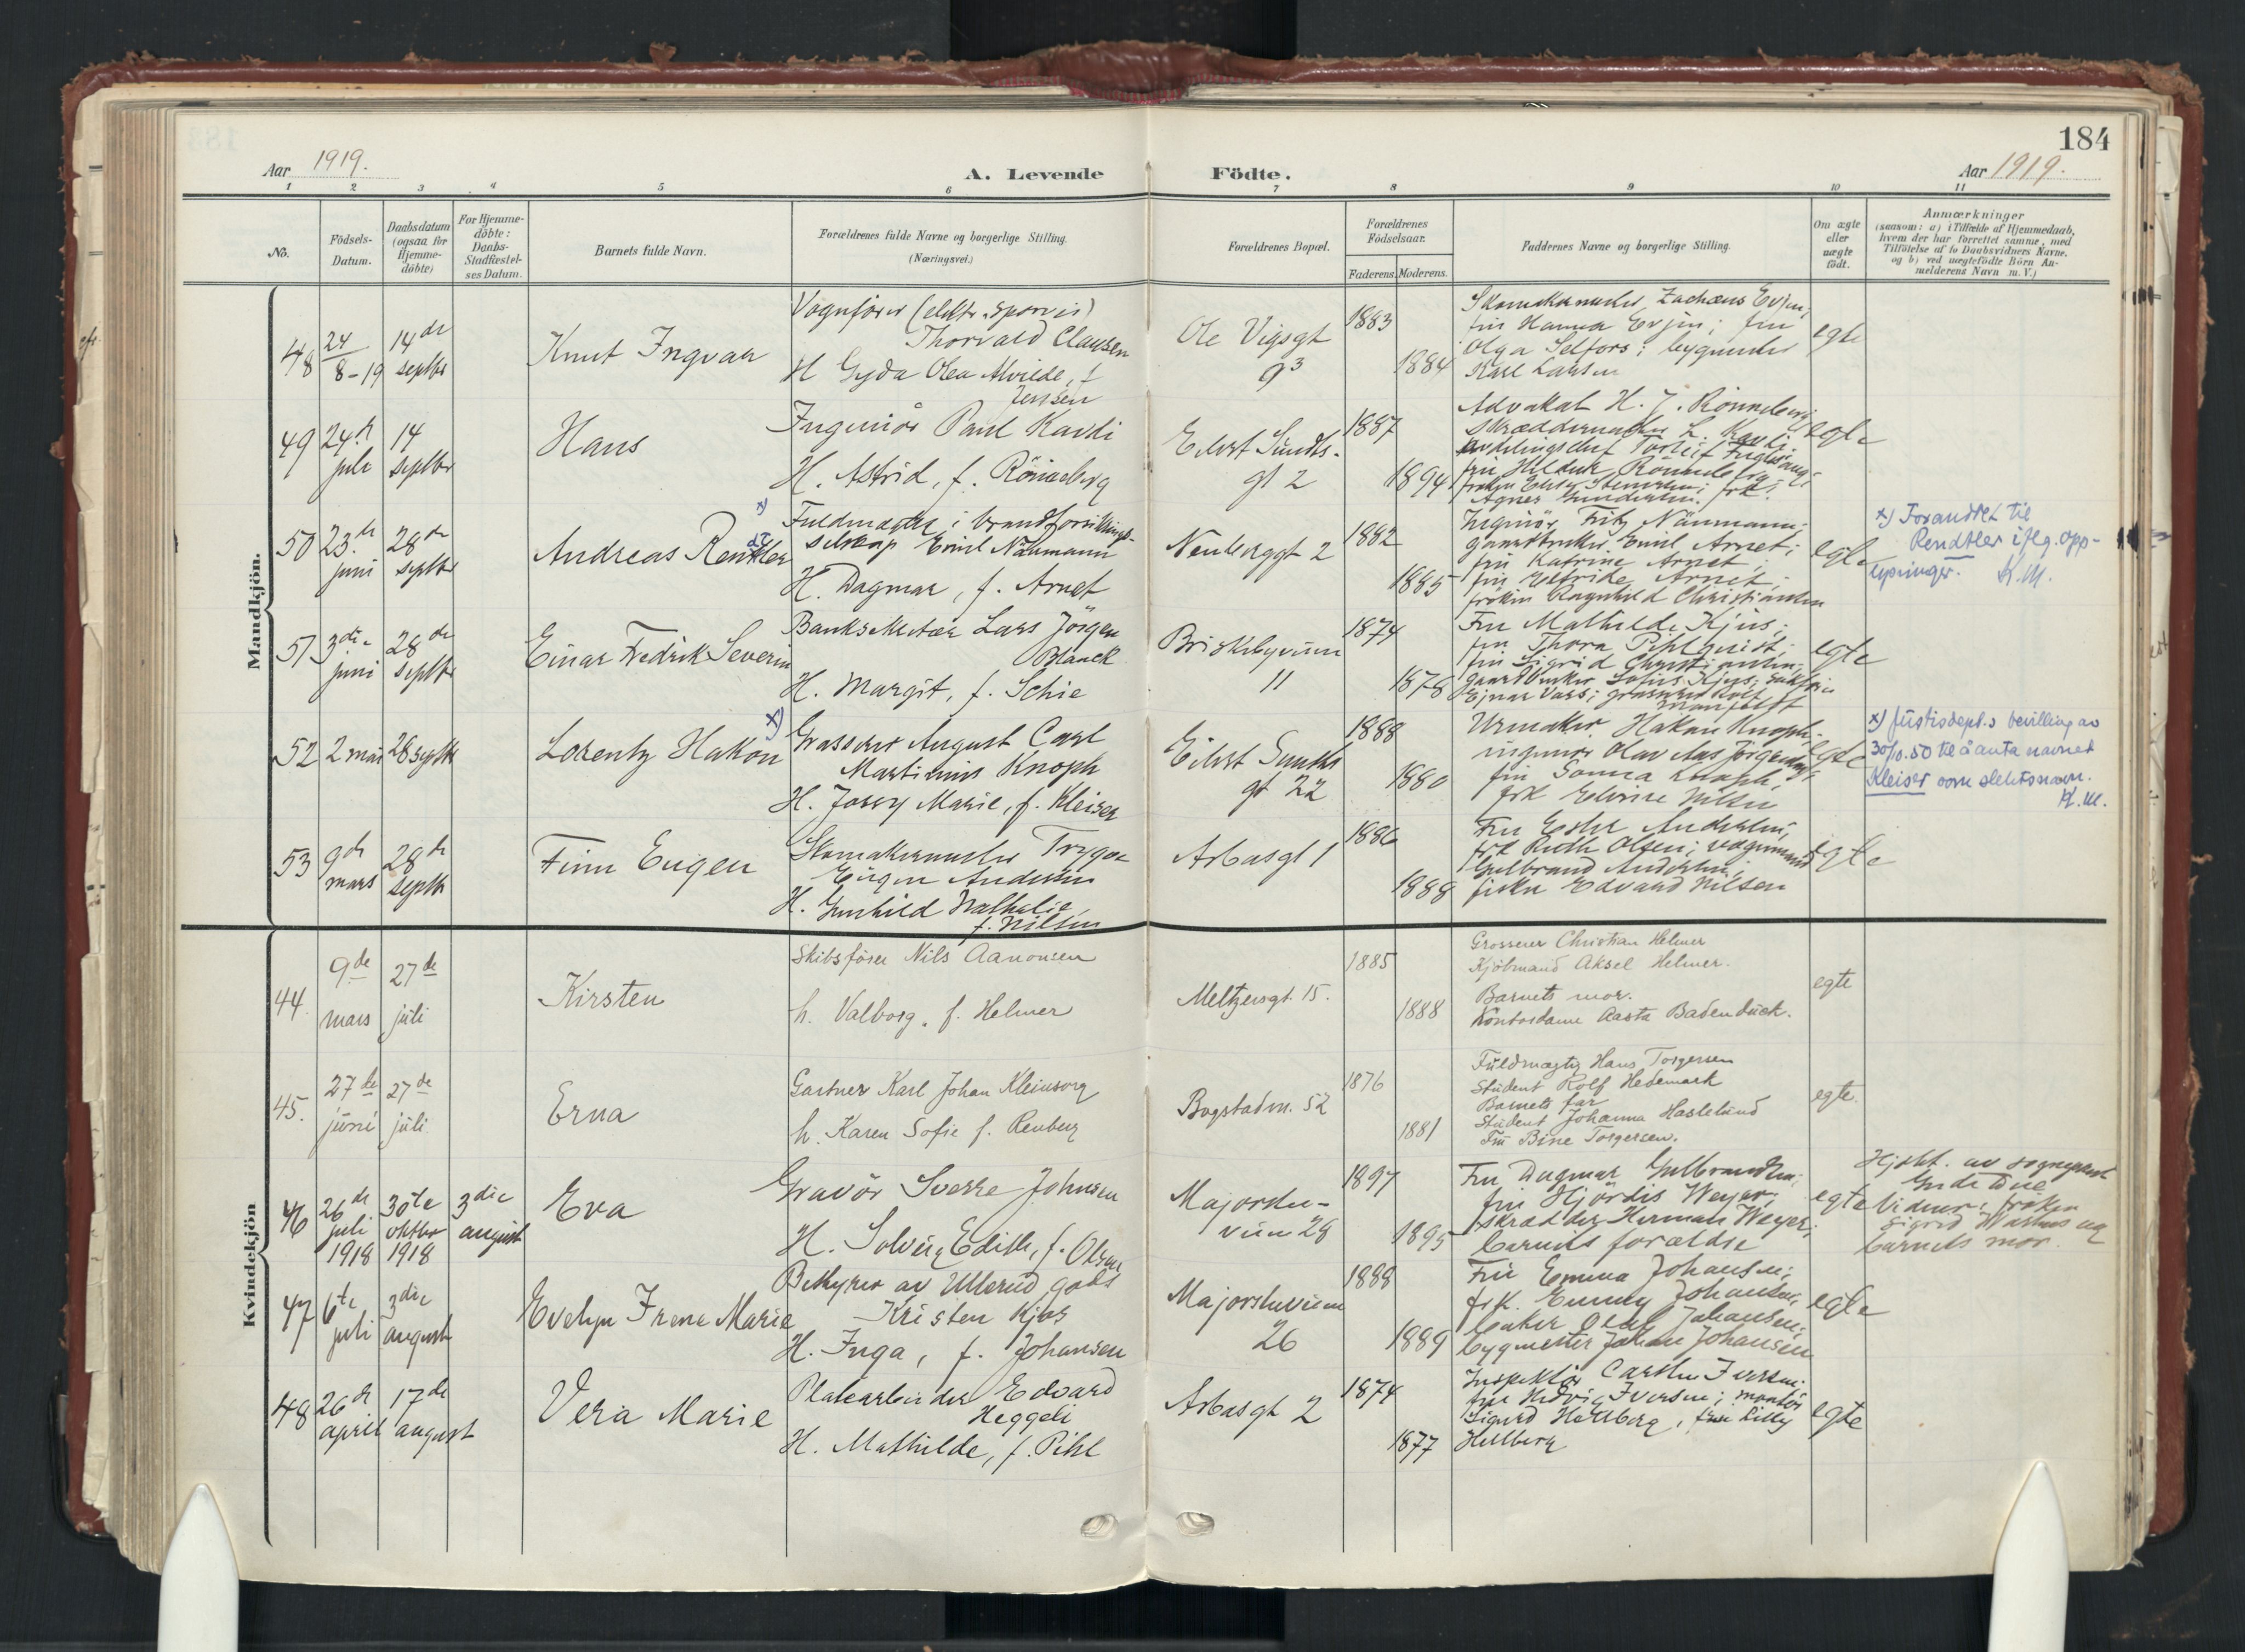 184
Aar 1919.
A. Levende Födte.
Aar 1919.
1 2 3 4 5 6 7 8 9 10 11
No.
Födsels-Datum.
Daabsdatum (ogsaa for Hjemme-döbte)
For Hjemme-döbte: Daabs-Stadfæstel-ses Datum.
Barnets fulde Navn.
Forældrenes fulde Navne og borgerlige Stilling.
(Næringsvei.)
Forældrenes Bopæl.
Forældrenes Födselsaar.
Faderens. Moderens.
Faddernes Navne og borgerlige Stilling.
Om ægte eller uægte födt.
Anmærkninger
(saasom: a) i Tilfælde af Hjemmedaab, hvem der har forrettet samme, med Tilföielse af to Daabsvidners Navne, og b) ved uægtefödte Börn An-melderens Navn m. V.)
Mandkjön.
48 24/8-19 14de septbr
Knut Ingvar
Vognfører (elektr. sporvei)
Thorvald Clausen
H Gyda Olea Alvilde, f
Jenssen
Ole Vigsgt
9³
1883
1884
Skomakermester Zachæus Evjen;
fru Hanna Evjen; fru
Olga Selfors; bygmester
Karl Larsen
egte
49 24de juli 14 septbr
Hans
Ingeniør Paul Kavli
H. Astrid, f. Rönneberg
Eilert Sundts-
gt 2
1887
1894
Advokat H. J. Rönneberg
Skræddermester L. Kavli;
avdelingschef Torleif
fru Rönneberg;
frk.
Agnes Gundersen.
egte
50 23de juni 28de septbr
Andreas Renttler x)
dt
Fuldmægtig i brandforsiknings-
selskap Emil Näumann
H. Dagmar, f. Arnet
Neuberggt 2
1882
1885
Ingeniör Fritz Näumann;
gaardbruker Emil Arnet;
fru Katrine Arnet;
fru Elfride Arnet;
frøken Ragnhild Christiansen
egte
x) Forandret til
Rendtler iflg. opp-
lysninger. K.M.
51 3die juni 28de septbr
Einar Fredrik Severin
Banksekretær Lars Jörgen
Blanck
H. Margit, f. Schie
Briskebyveien
11
1874
1878
Fru Mathilde Kjus;
fru Thora Pihlquist;
fru Sigrid Christiansen;
gaardbruker Sofus Kjus;
Ejnar Vars; grosserer Rolf
egte
52 2 mai 28 septbr
Lorentz Hakon x)
Grosserer August Carl
Martinius Knoph
H. Jossy Marie, f. Kleiser
Eilert Sundts
gt 22
1888
1880
Urmaker Hakon Knoph;
ingeniør Olav Aas Jörgensen;
fru Sanna Knoph;
frk Elvine Nilsen
egte
x) Justisdept.s bevilling av
30/10.50 til å anta navnet
Kleiser som slektsnavn.
K.M.
53 9de mars 28de septbr
Finn Eugen
Skomakermester Trygve
Eugen Andersen
H. Gunhild Nathalie,
f. Nilsen
Arbosgt 1
1886
1888
Fru Ester Andersen;
frk Ruth Olsen; vognmand
Gulbrand Andersen;
fisker Edvard Nilsen
egte
Kvindekjön
44. 9de mars 27de juli
Kirsten
Skibsfører Nils Aanonsen
h. Valborg, f. Helmer
Meltzersgt. 15.
1885
1888
Grosserer Christian Helmer
Kjöbmand Aksel Helmer.
Barnets mor.
Kontordame Aasta Badendück.
egte
45. 27de juni 27de juli
Erna
Gartner Karl Johan Kleinsorg
h. Karen Sofie f. Renberg
Bogstadvn. 52
1876
1881
Fuldmægtig Hans Torgersen
Student Rolf Hedemark
Barnets far
Student Johanna Haslelund
Fru Bine Torgersen.
egte.
46 26de juli 1918 30te oktbr 1918 3die august
Eva
Gravör Sverre Johnsen
H. Solveig Edith, f. Olsen
Majorstu-
veien 28
1897
1895
Fru Dagmar Gulbrandsen;
fru Hjördis Weyer;
skrædder Herman Weyer;
barnets forældre
egte
Hjdpt. av sogneprest
Vidner: frøken
Sigrid og
barnets mor.
47 6te juli 3die august
Evelyn Irene Marie
Bestyrer av Ullerud gods
Kristen Kjos
H. Inga, f. Johansen
Majorstuveien
26
1888
1889
Fru Emma Johansen;
frk. Emmy Johansen;
baker Olaf Johansen;
bygmester Johan Johansen
egte
48 26de april 17de august
Vera Marie
Platearbeider Edvard
Heggeli
H. Mathilde, f. Pihl
Arbosgt 2
1874
1877
Inspektör Carsten Iversen;
fru Hedvig Iversen; montör
Sigurd Hellberg, frue Lilly
Hellberg
egte